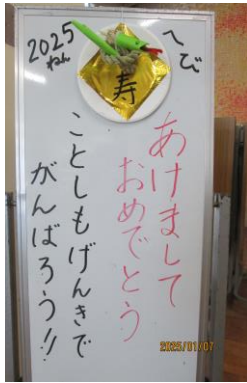 2025
ねん
へび
寿
あけまして
おめでとう
ことしもげんきで
がんばろう!!
2025/01/07